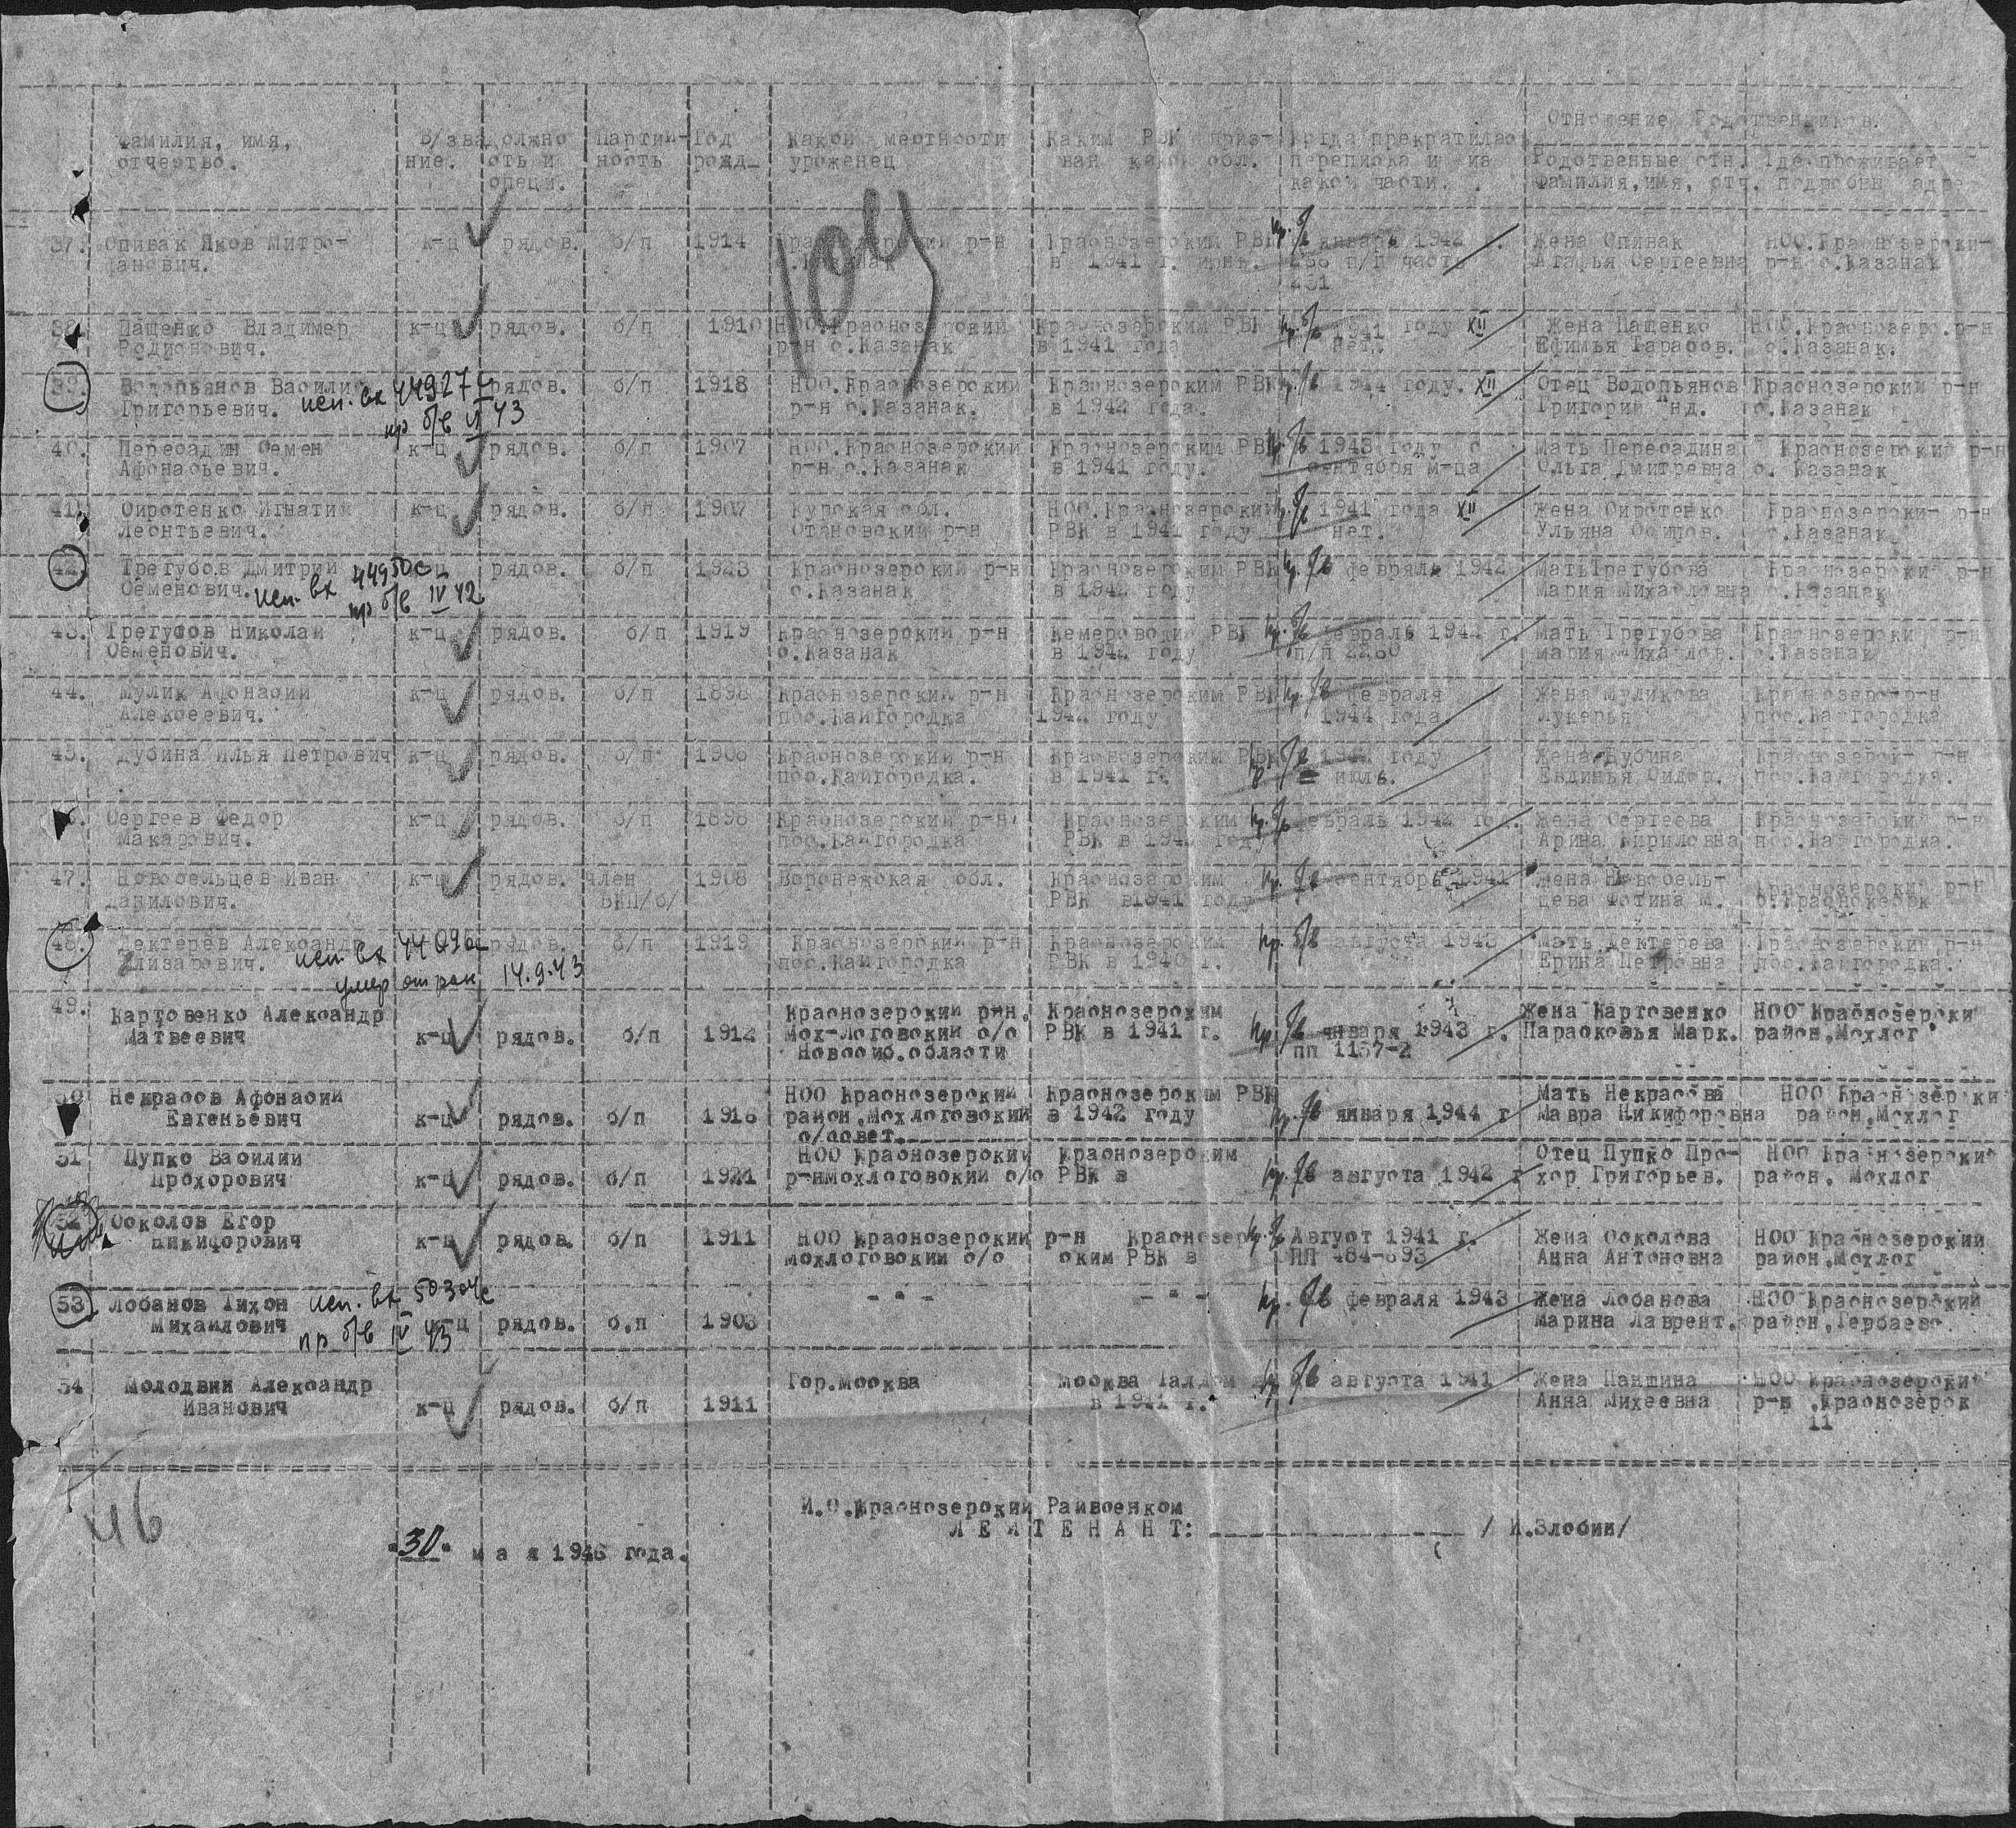 Отношение Родственников.
Фамилия, имя, В/зва должно Партий- Год Какой местности Каким РВК приз- Когда прекратилас
отчество. ние. сть и ность рожд_ уроженец ван какой обл. переписка и из Родственные отн. Где проживает
специ. какой части. Фамилия,имя, отч. подробны адре
37. Спивак Яков Митро- к-ц рядов. б/п 1914 р-н Краснозерским РВК пр. б/в январь 1942 г. Жена Спивак НСО.Краснозерски-
фанович. в 1941 г. 238 п/п часть Агафья Сергеевна р-н с.Казанак
104
38. Пащенко Владимер к-ц рядов. б/п 1910 НСО.Краснозерский Краснозерским РВК пр. б/в 1941 году XII Жена Пащенко НСО.Краснозерс.р-н
Родионович. р-н с.Казанак в 1941 года нет. Ефимья Тарасов. с.Казанак.
39. Водопьянов Василий рядов. б/п 1918 НСО.Краснозерский Краснозерским РВК пр. б/в году. XII Отец Водопьянов Краснозерский р-н
Григорьевич. исп. вх 44927с р-н с.Казанак. в 1942 года. Григорий с.Казанак
пр б/в 43
40. Пересадин Семен к-ц рядов. б/п 1907 НСО.Краснозерский Краснозерским РВК пр. б/в 1943 году с Мать Пересадина Краснозерский р-н
Афонасьевич. р-н с.Казанак в 1941 году. сентября м-ца Ольга Дмитревна с. Казанак
41. Сиротенко Игнатий к-ц рядов. б/п 1907 Курская обл. НСО.Краснозерский пр. б/в 1941 года XII Жена Сиротенко Краснозерски- р-н
Леонтьевич. Становский р-н РВК в 1941 году нет. Ульяна Осипов. с.Казанак.
42. Трегубов Дмитрий к-ц рядов. б/п 1923 Краснозерский р-н Краснозерским РВК пр. б/в февраль 1942 Мать Трегубова Краснозерский р-н
Семенович. исп. вх 44950с с.Казанак в 1942 году Мария Михайловна с.Казанак
пр б/в IV 42
43. Трегубов Николай к-ц рядов. б/п 1919 Краснозерский р-н Кемеровский РВК пр. б/в февраль 1942 г. Мать Трегубова Краснозерский р-н
Семенович. с.Казанак в 1942 году п/п 2280 Мария Михайлов. с.Казанак
44. Мулик Афонасий к-ц рядов. б/п 1898 Краснозерский р-н Краснозерским РВК пр. б/в февраля Жена Муликова Краснозерс-р-н
Алексеевич. пос.Кайгородка 1942 году 1944 года. Лукерья пос.Кайгородка
45. Дубина Илья Петрович к-ц рядов. б/п 1908 Краснозерский р-н Краснозерским РВК пр. б/в 1942 году Жена Дубина Краснозерск- р-н
пос.Кайгородка. в 1941 г. в июль. Евдинья Филип. пос.Кайгородка.
Сергеев Федор к-ц рядов. б/п 1898 Краснозерский р-н Краснозерским пр. б/в февраль 1942 год. Жена Сергеева Краснозерский р-н
Макарович. пос.Кайгородка РВК в году Арина Кириловна пос.Кайгородка.
47. Новосельцев Иван к-ц рядов. член 1908 Воронежская обл. Краснозерским пр. б/в сентябрь 1941 Жена Новосель- Краснозерский р-н
Данилович. ВКП/б/ РВК в1941 году цева Фотина М.
48. Дектерев Александр рядов. б/п 1919 Краснозерский р-н Краснозерским пр. б/в августа 1943 Мать Дектерева Краснозерский р-н
Елизарович. исп. вх 44096с пос.Кайгородка РВК в 1940 г. Ерина Петровна пос.Кайгородка.
умер от ран 14.9.43
49. Картовенко Александр Краснозерский р-н. Краснозерским Жена Картовенко НСО Краснозерски
Матвеевич к-ц рядов. б/п 1912 Мох-Логовский с/с РВК в 1941 г. пр. б/в января 1943 г. Парасковья Марк. район,Мохлог
Новосиб.области пп 1157-2
50 Некрасов Афонасий НСО Краснозерский Краснозерским РВК Мать Некрасова НСО Краснозерски
Евгеньевич к-ц рядов. б/п 1918 район,Мохлоговский в 1942 году пр. б/в января 1944 г Мавра Никифоровна район,Мохлог
с/совет.
51 Пупко Василий НСО Краснозерский Краснозерским Отец Пупко Про- НСО Краснозерский
Прохорович к-ц рядов. б/п 1921 р-нмохлоговский с/с РВК в пр. б/в августа 1942 г хор Григорьев. район, Мохлог
52 Соколов Егор к-ц рядов. б/п 1911 НСО Краснозерский р-н Краснозер пр. б/в Август 1941 г. Жена Соколова НСО Краснозерский
Никифорович мохлоговский с/с ским РВК в ПП 484-693 Анна Антоновна район,Мохлог
53. Лобанов Тихон исп. вх 50304с - " - - " - пр. б/в февраля 1943 Жена Лобанова НСО Краснозерский
Михайлович к-ц рядов. б.п 1903 Марина Лаврент. район,Гербаево.
пр б/в IV 43
54 Молодвин Александр Гор.Москва Москва пр. б/в августа 1941 Жена Паншина НСО Краснозерский
Иванович к-ц рядов. б/п 1911 в 1941 г. Анна Михеевна р-н ,Краснозерск
11
46
И.О.Краснозерский Райвоенком
ЛЕЙТЕНАНТ: / И.Злобин/
"30" м а я 1946 года.